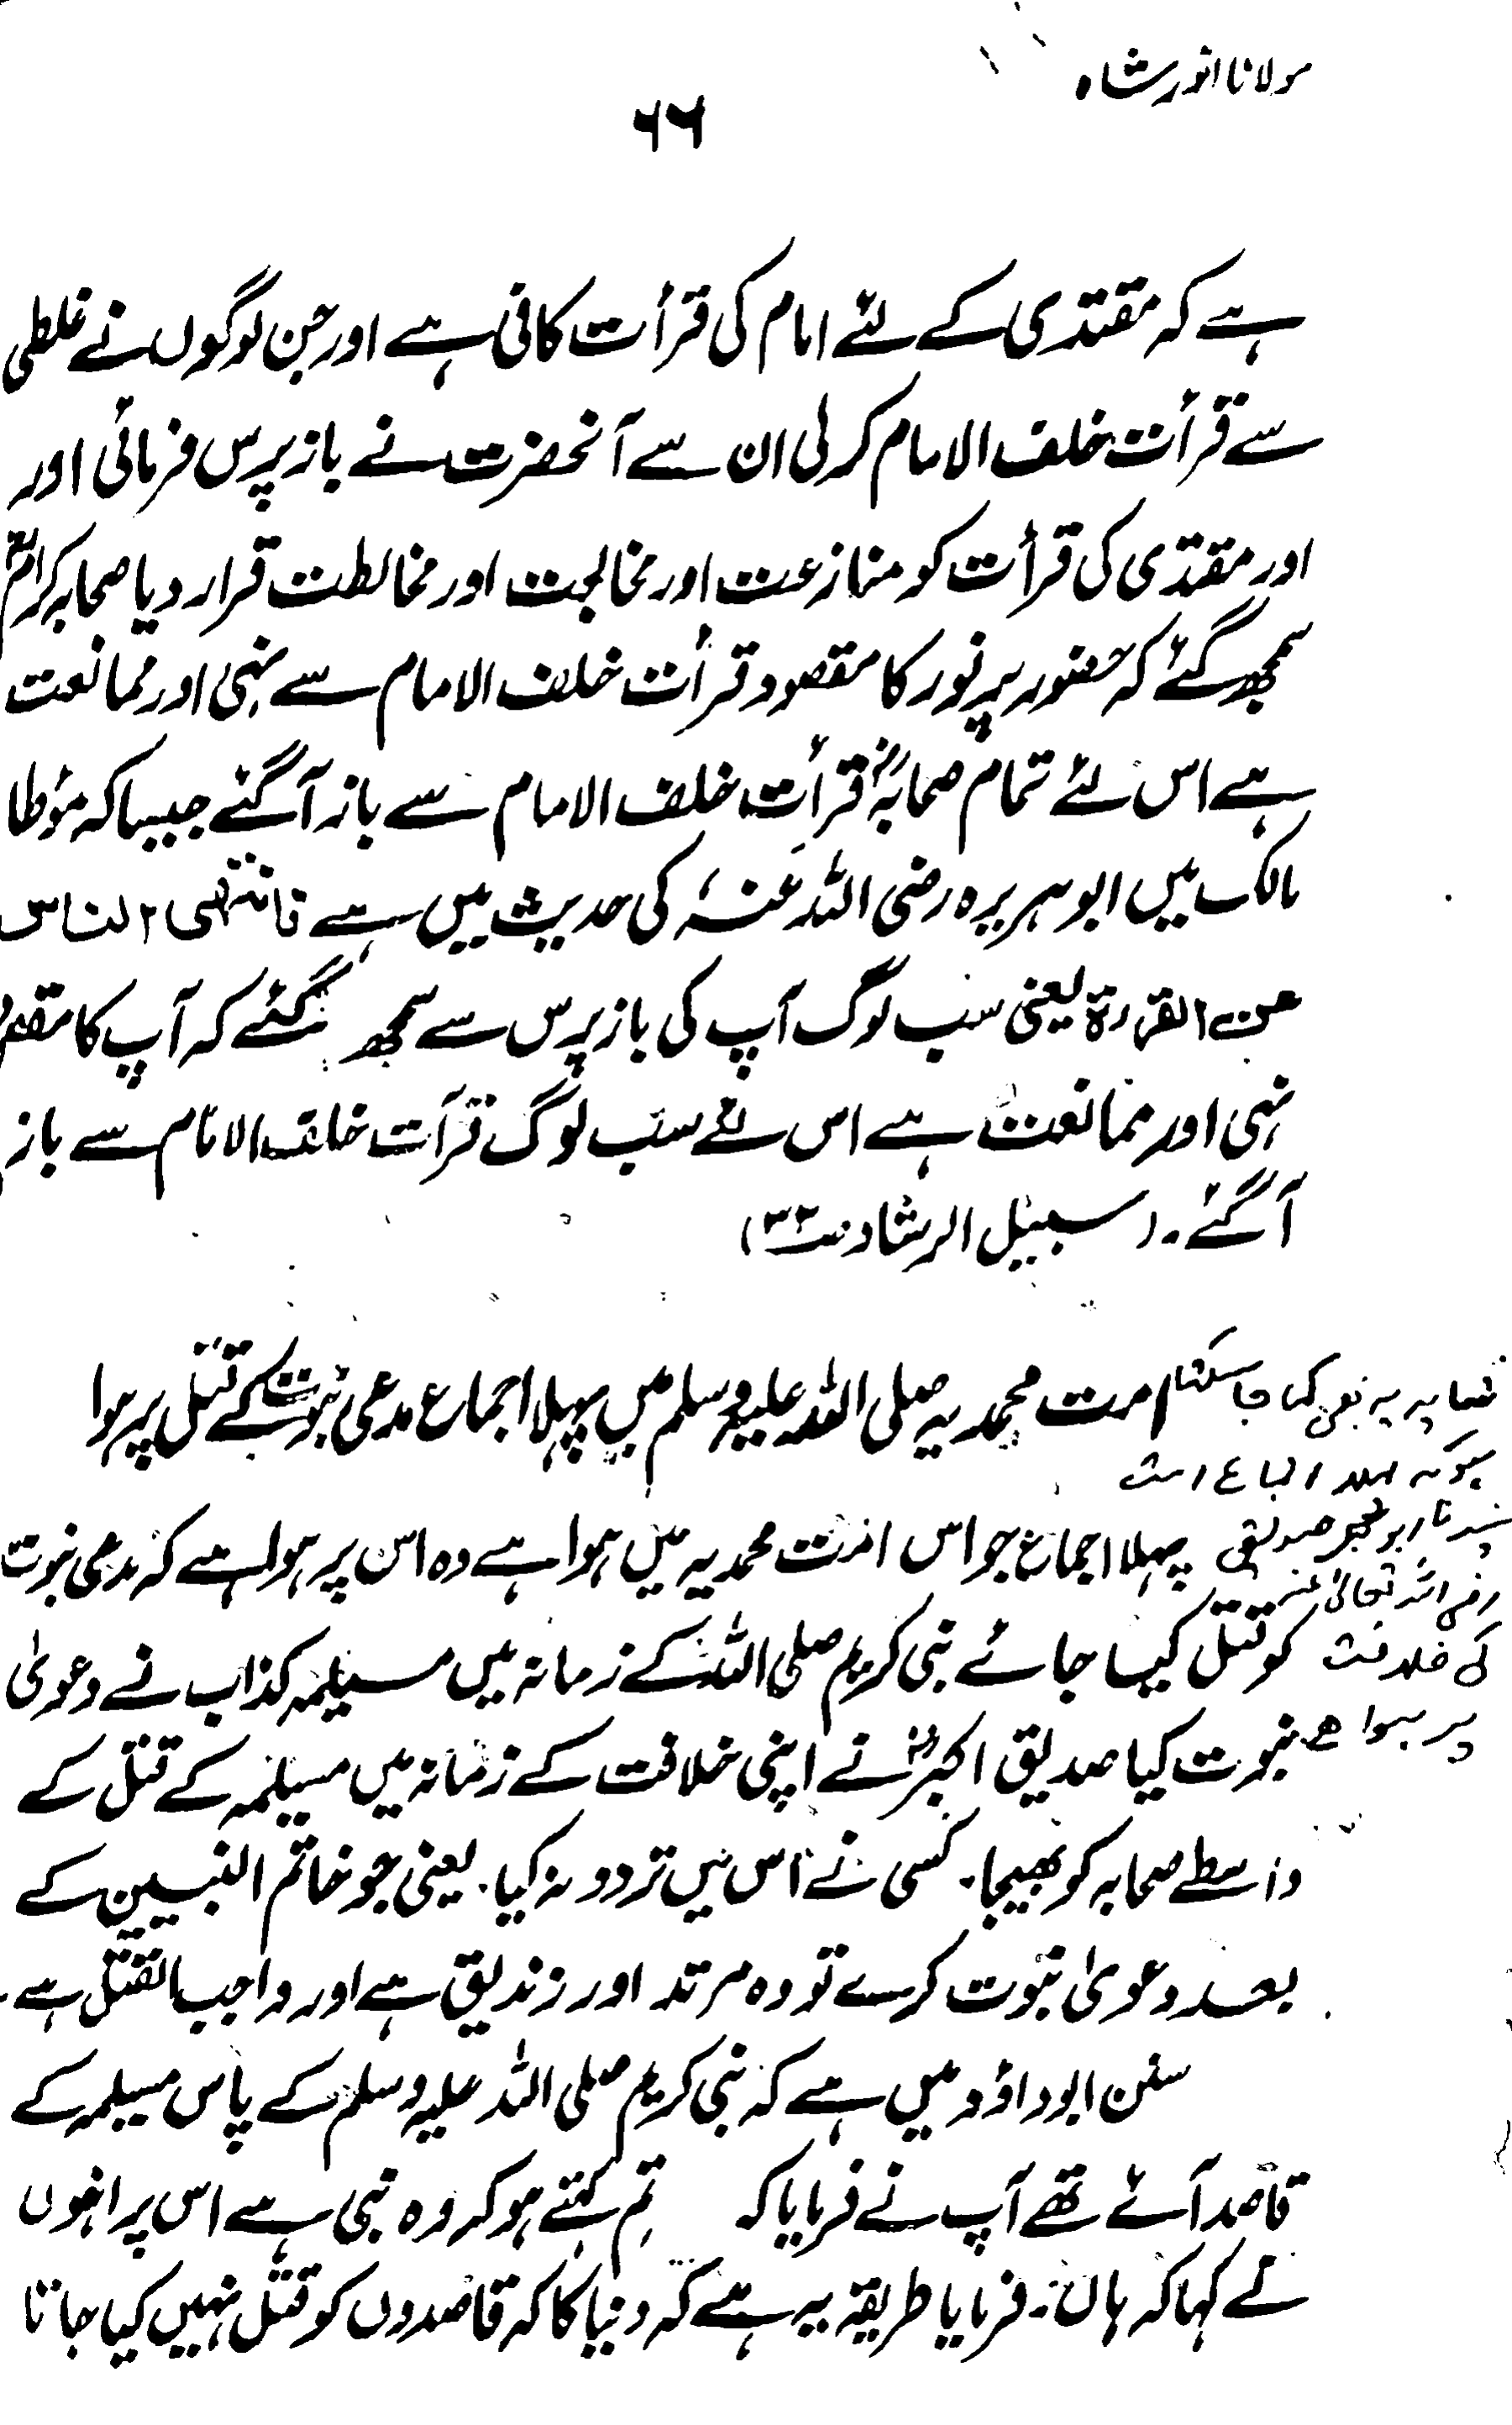 مولانا انور شاہ
۶۶
ہے کہ مقتدی کے لئے امام کی قرأت کافی ہے اور جن لوگوں نے غلطی
سے قرأت خلف الامام کرلی ان سے آنحضرت نے بازپرس فرمائی اور
اور مقتدی کی قرأت کو منازعت اور مخالجت اور مخالطت قرار دیا صحابہ کرامؓ
سمجھ گئے کہ حضور پر نور کا مقصود قرأت خلف الامام سے نہی اور ممانعت
ہے اس لئے تمام صحابہؓ قرأت خلف الامام سے باز آگئے جیسا کہ مؤطا
مالک میں ابوہریرہ رضی اللہ عنہٗ کی حدیث میں ہے فانتھی الناس
عن القراۃ یعنی سب لوگ آپ کی بازپرس سے سمجھ گئے کہ آپ کا
نہی اور ممانعت ہے اس لئے سب لوگ قرآت خلف الامام سے باز
آگئے ۔ (سبیل الرشاد ص۳۲)
امت محمدیہ صلی اللہ علیہ وسلم میں پہلا اجماع مدعی نبوت کے قتل پر ہوا
پہلا اجماع جو اس امت محمدیہ میں ہوا ہے وہ اس پر ہوا ہے کہ مدعی نبوت
کو قتل کیا جائے نبی کریم صلی اللہ کے زمانہ میں مسیلمہ کذاب نے دعویٰ
نبوت کیا صدیق اکبرؓ نے اپنی خلافت کے زمانہ میں مسیلمہ کے قتل کے
واسطے صحابہ کو بھیجا۔ کسی نے اس میں تردد نہ کیا۔ یعنی جو خاتم النبیین کے
بعد دعویٰ نبوت کرے تو وہ مرتد اور زندیق ہے اور واجب القتل ہے۔
سنن ابوداؤد میں ہے کہ نبی کریم صلی اللہ علیہ وسلم کے پاس مسیلمہ کے
قاصد آئے تھے آپ نے فرمایا کہ تم کہتے ہو کہ وہ نبی ہے اس پر انہوں
نے کہا کہ ہاں۔ فرمایا طریقہ یہ ہے کہ دنیا کا کہ قاصدوں کو قتل نہیں کیا جاتا
یہ بھی کہا جا سکتا
اجماع امت
سیدنا ابوبکر صدیق
رضی اللہ تعالیٰ عنہ
کی خلافت
پر ہوا ھے